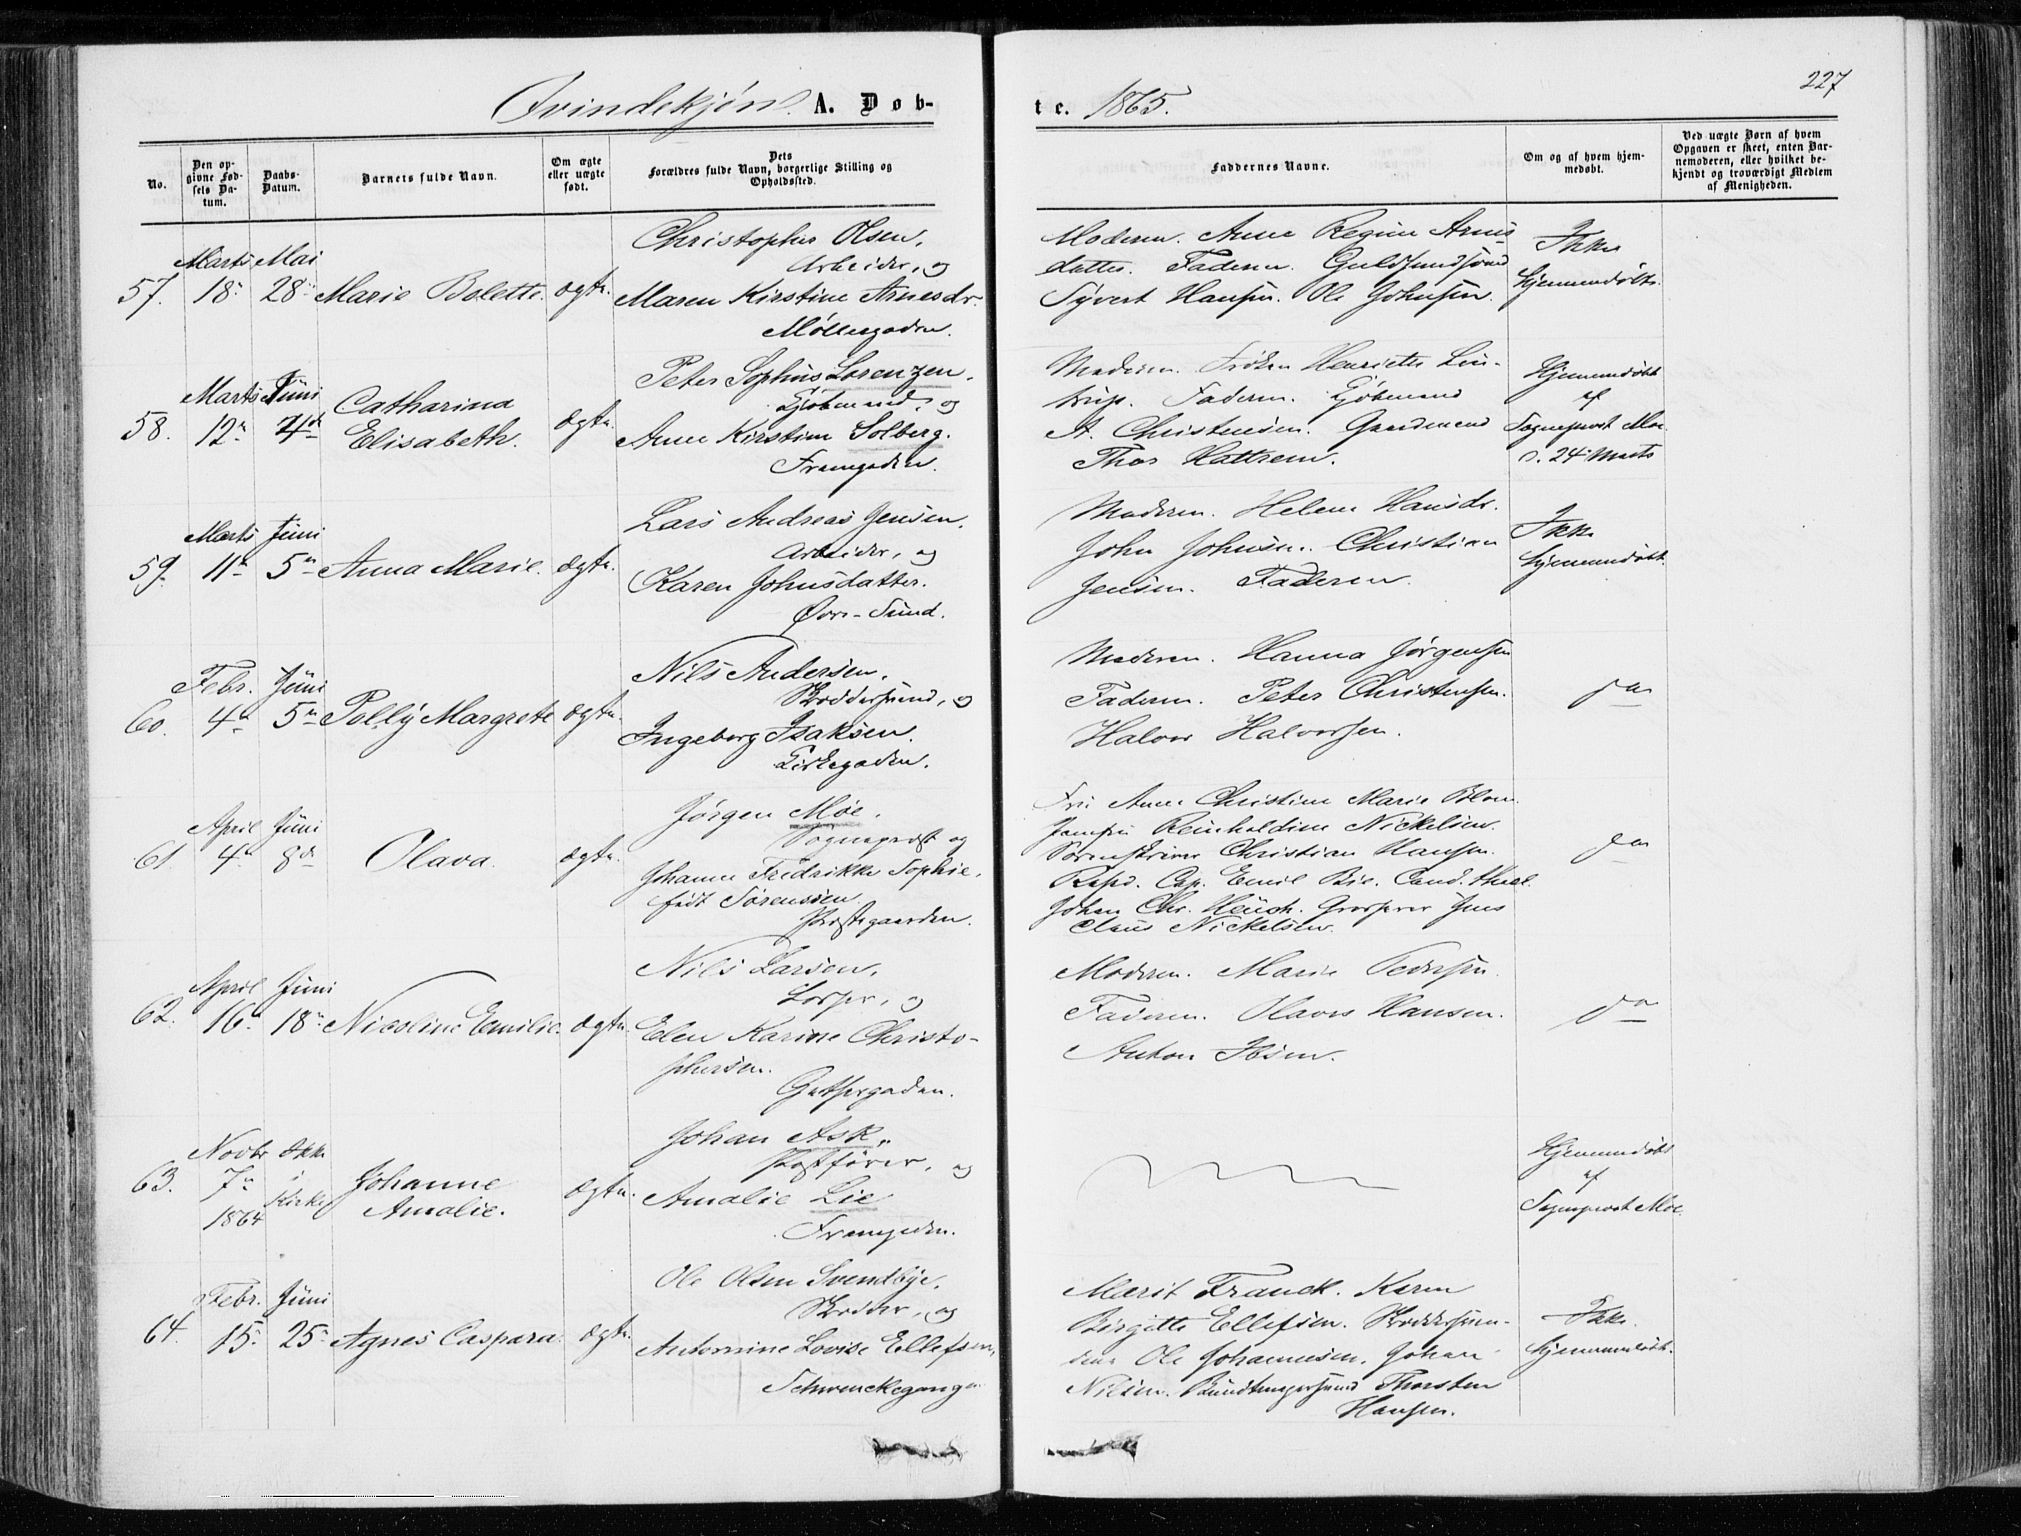 227
Qvindekjøn. A. Døb-
te. 1865.
No.
Den op-
givne Fød-
sels Da-
tum.
Daabs-
Datum.
Barnets fulde Navn.
Om ægte
eller uægte
født.
Dets
Forældres fulde Navn, borgerlige Stilling og
Opholdssted.
Faddernes Navne.
Om og af hvem hjem-
medøbt.
Ved uægte Børn af hvem
Opgaven er skeet, enten Bar-
nemoderen, eller hvilket be-
kjendt og troværdigt Medlem
af Menigheden.
57.
Marts
18
Mai
28
Marie Bolette.
ægte.
Christopher Olsen,
Arbeider, og
Maren Kirstine Arnesdr.
Møllergaden.
Moderen. Anne Regine Arnes-
datter. Faderen.
Syvert Hansen. Ole Johnsen.
Ikke
hjemmedøbt.
58.
Marts
12
Juni
4de
Catharina
Elisabeth.
ægte.
Peter Sophus Lorenzen,
Kjøbmand, og
Anne Kirstine Solberg.
Tramgaden.
Moderen. Frøken Henriette Lin-
trup. Faderen. Kjøbmand
A. Christensen. Gaardmand
Thor Hattrem.
Hjemmedøbt
af
Sogneprest Moe
d. 24 Marts
59.
Marts
11
Juni
5
Anna Marie.
ægte.
Lars Andreas Jensen,
Arbeider, og
Karen Johnsdatter.
Øvre-Sund.
Moderen. Helene Hansdr.
John Johnsen. Christian
Jensen. Faderen.
Ikke
hjemmedøbt.
60.
Febr.
4
Juni
5
Polly Margrete
ægte.
Nils Andersen,
Skræddersvend, og
Ingeborg Isaksen.
Kirkegaden.
Moderen. Hanna Jørgensen
Faderen. Peter Christensen.
Halvor Halvorsen.
do
61
April
4
Juni
8de
Olava.
ægte.
Jørgen Moe,
Sogneprest og
Johanne Fredrikke Sophie,
født Sørensen.
Prestegaarden.
Fru Anne Christine Marie Blom.
Jomfru Reinholdine Nickelsen.
Sorenskriver Christian Hansen.
Resp. Cap. Emil Bie. Cand. theol.
Johan Chr. Heuch. Grosserer Jens
Claus Nickelsen.
do
62.
April
16
Juni
18
Nicoline Emilie.
ægte.
Nils Larsen,
og
Elen Karine Christo-
phersen.
Moderen. Marie Pedersen.
Faderen. Olaves Hansen.
Anton Ibsen.
do
63.
Novbr
7
1864
Ikke
i
Kirke
Johanne
Amalie.
ægte.
Johan Ask,
Postfører, og
Amalie Lie
Tramgaden.
Hjemmedøbt
af
Sogneprest Moe.
64.
Febr.
15
Juni
25
Agnes Caspara.
ægte.
Ole Olsen Svendbye,
Skrædder, og
Antonnine Lovise Ellefsen,
Schwenckegangen
Marit Franck. Karen
Birgitte Ellefsen. Skræddersven-
dene Ole Johannesen, Johan
Nilsen. Bundtmagersvend Thorsten
Hansen.
Ikke
hjemmedøbt.